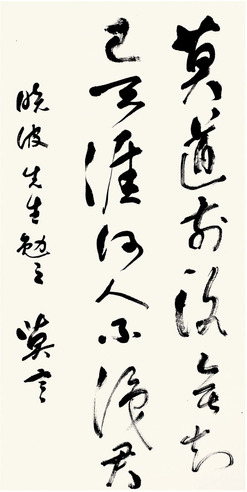 莫道前路無知
己天涯何人不識君
曉波先生勉之 莫言